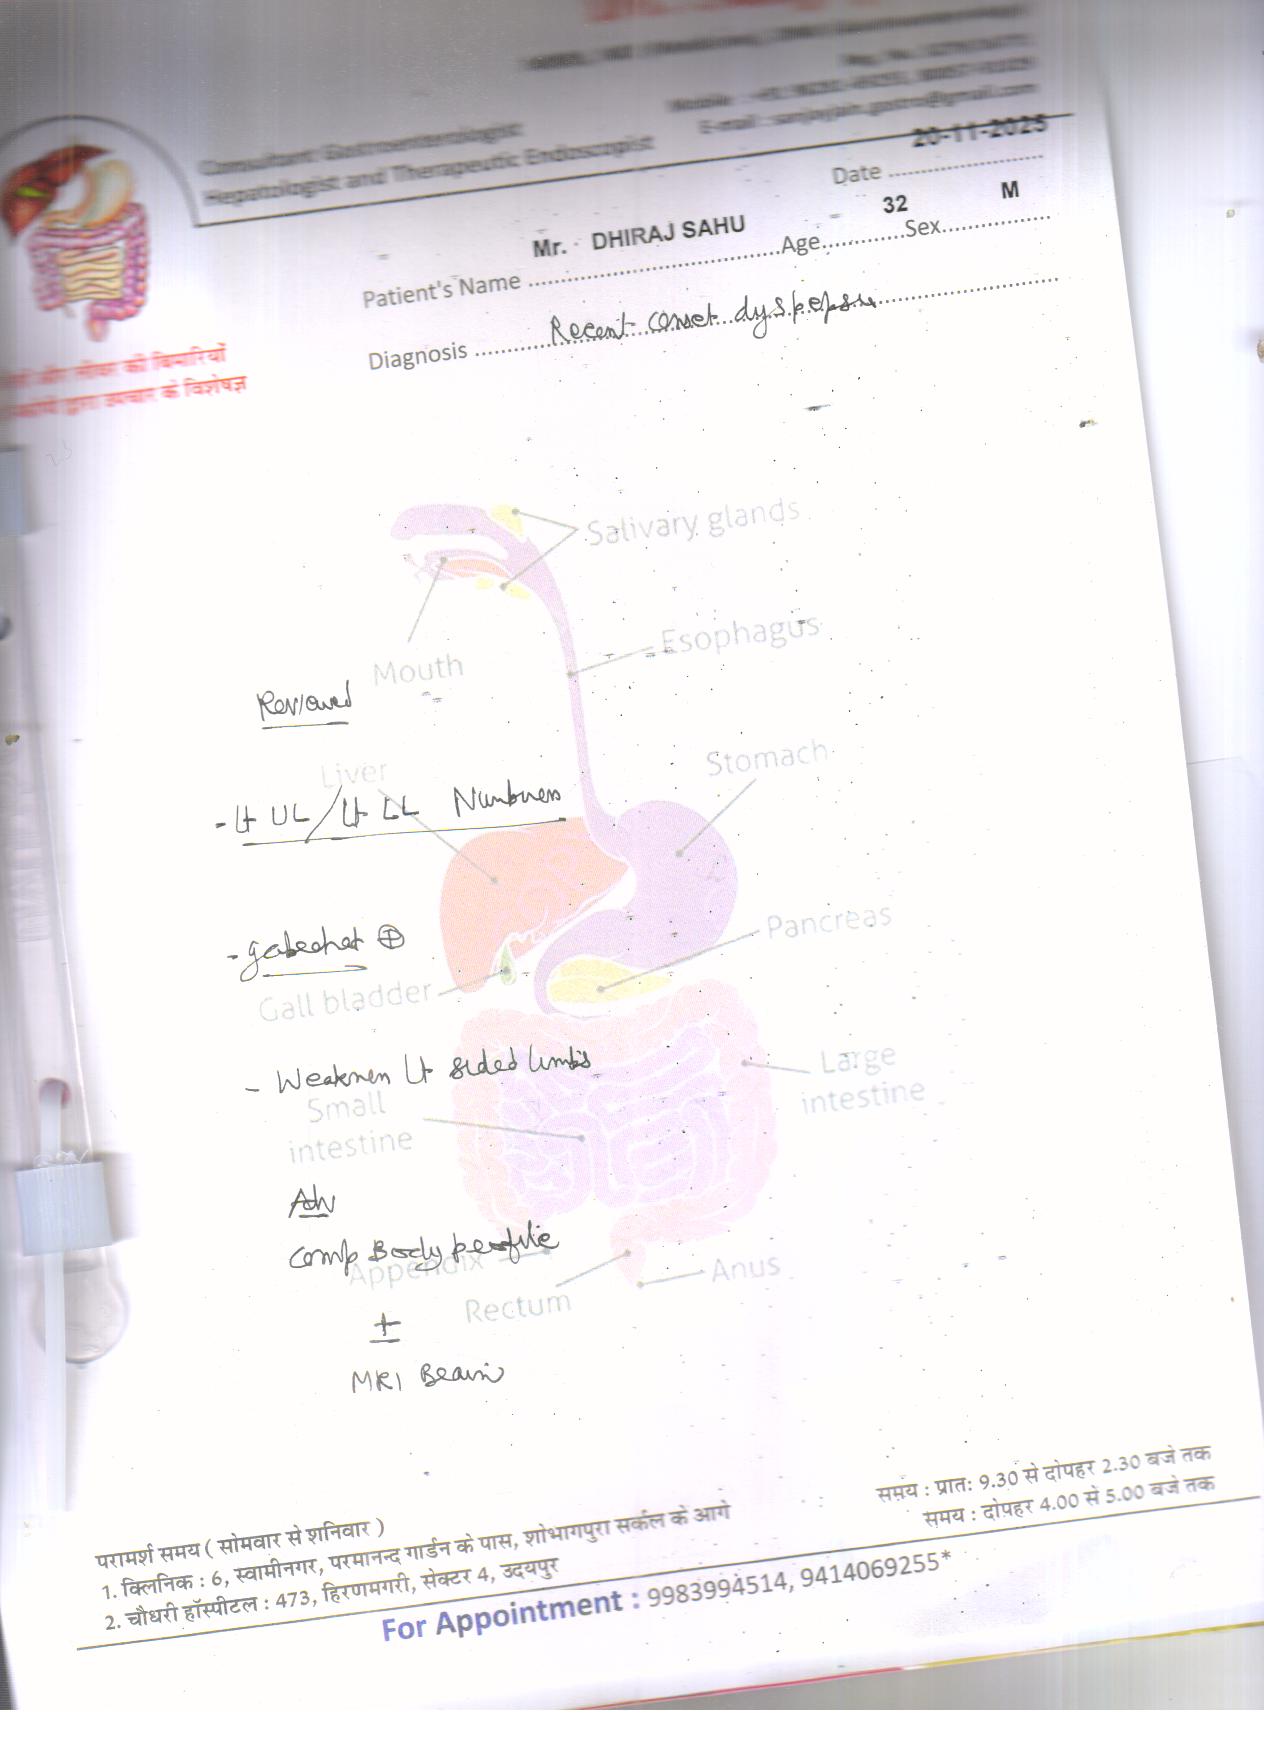 Consultant Gastroenterologist
Hepatologist and Therapeutic Endoscopist
Mobile :
E-mail : sanjayjain.gastro@gmail.com
20-11-2025
Date
Mr. DHIRAJ SAHU 32 M
Patient's Name Age Sex
Recent onset dyspepsia
Diagnosis
और लीवर की बिमारियों
द्वारा उपचार के विशेषज्ञ
Salivary glands
Esophagus
Mouth
Reviewed
Stomach
Liver
- Lt UL / Lt LL Numbness
Pancreas
⊕
Gall bladder
Large
intestine
- Weakness Lt sided limbs
Small
intestine
Adv
Comp Body profile
Appendix
Anus
Rectum
+
MRI Brain
समय : प्रातः 9.30 से दोपहर 2.30 बजे तक
समय : दोपहर 4.00 से 5.00 बजे तक
परामर्श समय ( सोमवार से शनिवार )
1. क्लिनिक : 6, स्वामीनगर, परमानन्द गार्डन के पास, शोभागपुरा सर्कल के आगे
2. चौधरी हॉस्पीटल : 473, हिरणमगरी, सेक्टर 4, उदयपुर
For Appointment : 9983994514, 9414069255*